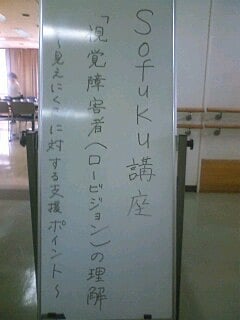 Sofuku講座
「視覚障害者(ロービジョン)の理解
～見えにくさに対する支援ポイント～